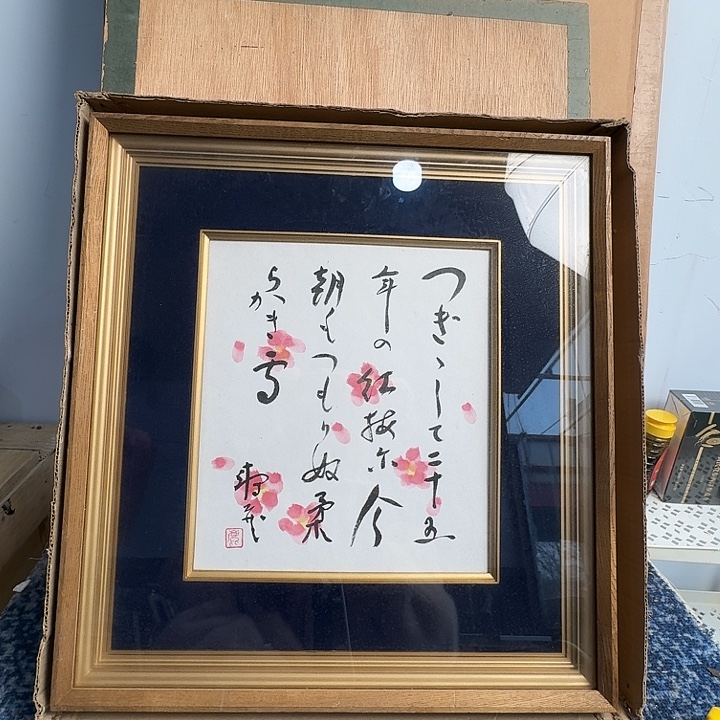 つぎゝして二十五
年の紅梅尓今
朝もつもりぬ柔
らかき雪